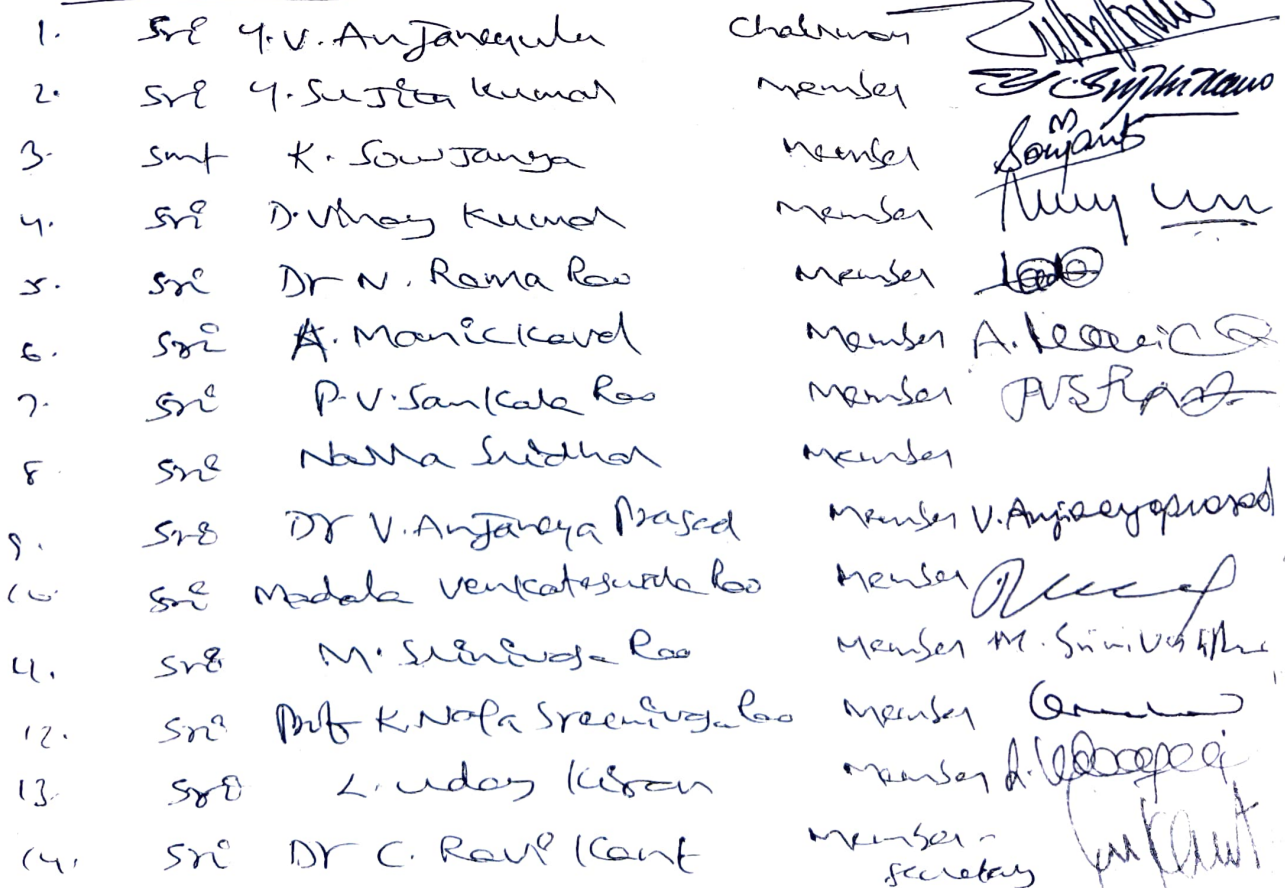 1. Sri Y.V. Anjaneyulu Chairman
2. Sri Y. Sujita Kumar Member
3. Smt K. Sowjanya Member Sowjanya
4. Sri D. Vinay Kumar Member
5. Sri Dr N. Rama Rao Member
6. Sri A. Manickavel Member A. Manic
7. Sri P.V. Sankara Rao Member
8. Sri Nalla Sridhar Member
9. Sri Dr V. Anjaneya Prasad Member V. Anjaneyaprasad
10. Sri Madala Venkateswara Rao Member
11. Sri M. Srinivasa Rao Member M. Srinivas
12. Sri Prof K. Naga Sreenivasa Rao Member
13. Sri L. Uday Kiran Member
14. Sri Dr C. Ravi Kant Member -
Secretary